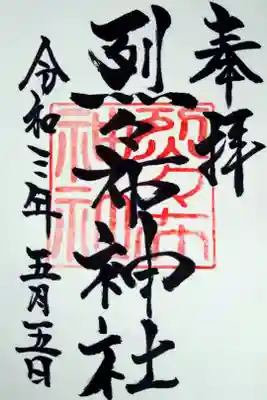 奉拝
烈々布神社
烈々布
神社
令和三年 五月五日